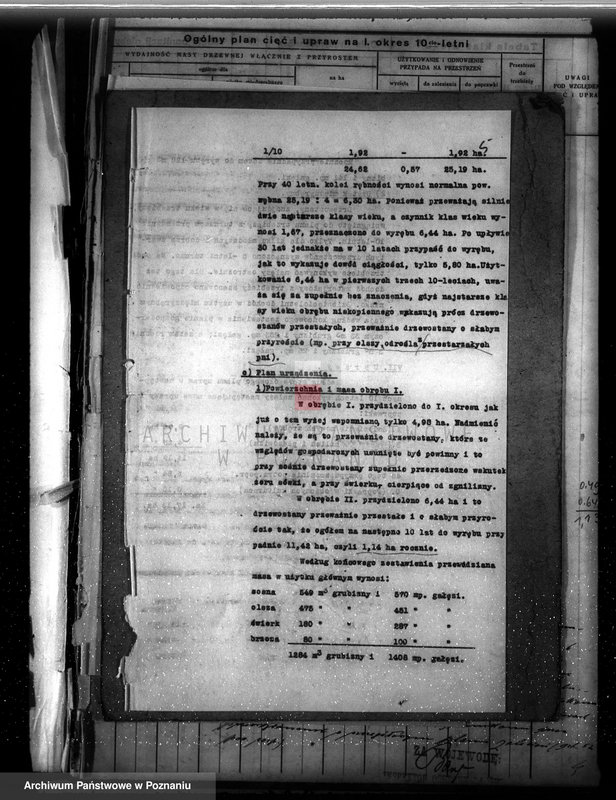 Ogólny plan cięć i upraw na I. okres 10-cio-letni
WYDAJNOŚĆ MASY DRZEWNEJ WŁĄCZNIE Z PRZYROSTEM
UŻYTKOWANIE I ODNOWIENIE
PRZYPADA NA PRZESTRZEŃ
ogółem dla
na ha
wycięta
do zalesienia
do poprawki
Przestrzeń
do
trzebieży
UWAGI
POD WZGLĘDEM
CIĘĆ I UPRAW
1/10 1,92 - 1,92 ha.
5
24,62 0,57 25,19 ha.
Przy 40 letn. kolei rębności wynosi normalna pow.
rębna 25,19 : 4 = 6,30 ha. Ponieważ przeważają silnie
dwie najstarsze klasy wieku, a czynnik klas wieku wy-
nosi 1,67, przeznaczono do wyrębu 6,44 ha. Po upływie
30 lat jednakże ma w 10 latach przypaść do wyrębu,
jak to wykazuje dowód ciągłości, tylko 5,80 ha.Użyt-
kowanie 6,44 ha w pierwszych trzech 10-leciach, uwa-
ża się za zupełnie bez znaczenia, gdyż najstarsze kla
sy wieku obrębu niskopiennego wykazują prócz drzewo-
stanów przestałych, przeważnie drzewostany o słabym
przyroście (np. przy olszy odrośla przestarzałych
pni).
c) Plan urządzenia.
1)Powierzchnia i masa obrębu I.
W obrębie I. przydzielono do I. okresu jak
już o tem wyżej wspomniano tylko 4,98 ha. Nadmienić
należy, że są to przeważnie drzewostany, które ze
względów gospodarczych usunięte być powinny i to
przy sośnie drzewostany zupełnie przerzedzone wskutek
żeru sówki, a przy świerku, cierpiące od zgnilizny.
W obrębie II. przydzielono 6,44 ha i to
drzewostany przeważnie przestałe i o słabym przyro-
ście tak, że ogółem na następne 10 lat do wyrębu przy
padnie 11,42 ha, czyli 1,14 ha rocznie.
Według końcowego zestawienia przewidziana
masa w użytku głównym wynosi:
sosna 549 m3 grubizny i 570 mp. gałęzi.
olsza 475 " " 451 " "
świerk 180 " " 287 " "
brzoza 80 " " 100 " "
1284 m3 grubizny i 1408 mp. gałęzi.
ARCHIWUM
W
ZA WOJEWODĘ:
Archiwum Państwowe w Poznaniu